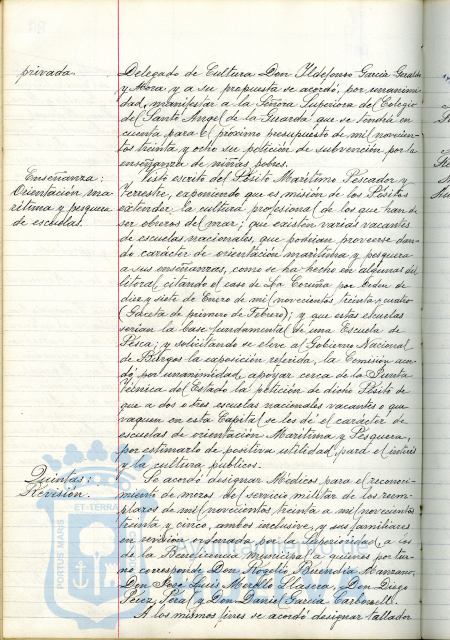 privada.
Delegado de Cultura Don Ildefonso García Geralde
y Mora y a su propuesta se acordó, por unanimi-
dad, manifestar a la Señora Superiora del Colegio
del Santo Angel de la Guarda que se tendrá en
cuenta para el próximo presupuesto de mil novecien-
tos treinta y ocho su petición de subvención por la
enseñanza de niñas pobres.
Enseñanza:
Orientación ma-
rítima y pesquera
de escuelas.
Visto escrito del Pósito Marítimo Pescador y
Terrestre, exponiendo que es misión de los Pósitos
extender la cultura profesional de los que han de
ser obreros del mar; que existen varias vacantes
de escuelas nacionales, que podrían proveerse dan-
do carácter de orientación marítima y pesquera
a sus enseñanzas, como se ha hecho en algunas del
litoral, citando el caso de La Coruña por Orden de
diez y siete de Enero de mil novecientos treinta y cuatro
(Gaceta de primero de Febrero); y que estas escuelas
serían la base fundamental de una Escuela de
Pesca; y solicitando se eleve al Gobierno Nacional
de Burgos la exposición referida, la Comisión acor-
dó, por unanimidad, apoyar cerca de la Junta
Técnica del Estado la petición de dicho Pósito de
que a dos o tres escuelas nacionales vacantes o que
vaquen en esta Capital se les dé el carácter de
escuelas de orientación Marítima y Pesquera,
por estimarlo de positiva utilidad para el interés
y la cultura públicos.
Quintas:
Revisión.
Se acordó designar Médicos para el reconoci-
miento de mozos del servicio militar de los reem-
plazos de mil novecientos treinta a mil novecientos
treinta y cinco, ambos inclusive, y sus familiares
en revisión ordenada por la Superioridad, a los
de la Beneficencia municipal a quienes por tur-
no corresponde Don Rogelio Buendía Manzano,
Don José Luis Morello Llasera, Don Diego
Pérez Pera y Don Daniel García Carbonell.
A los mismos fines se acordó designar Tallador
PORTUS MARIS
ET TERRAE